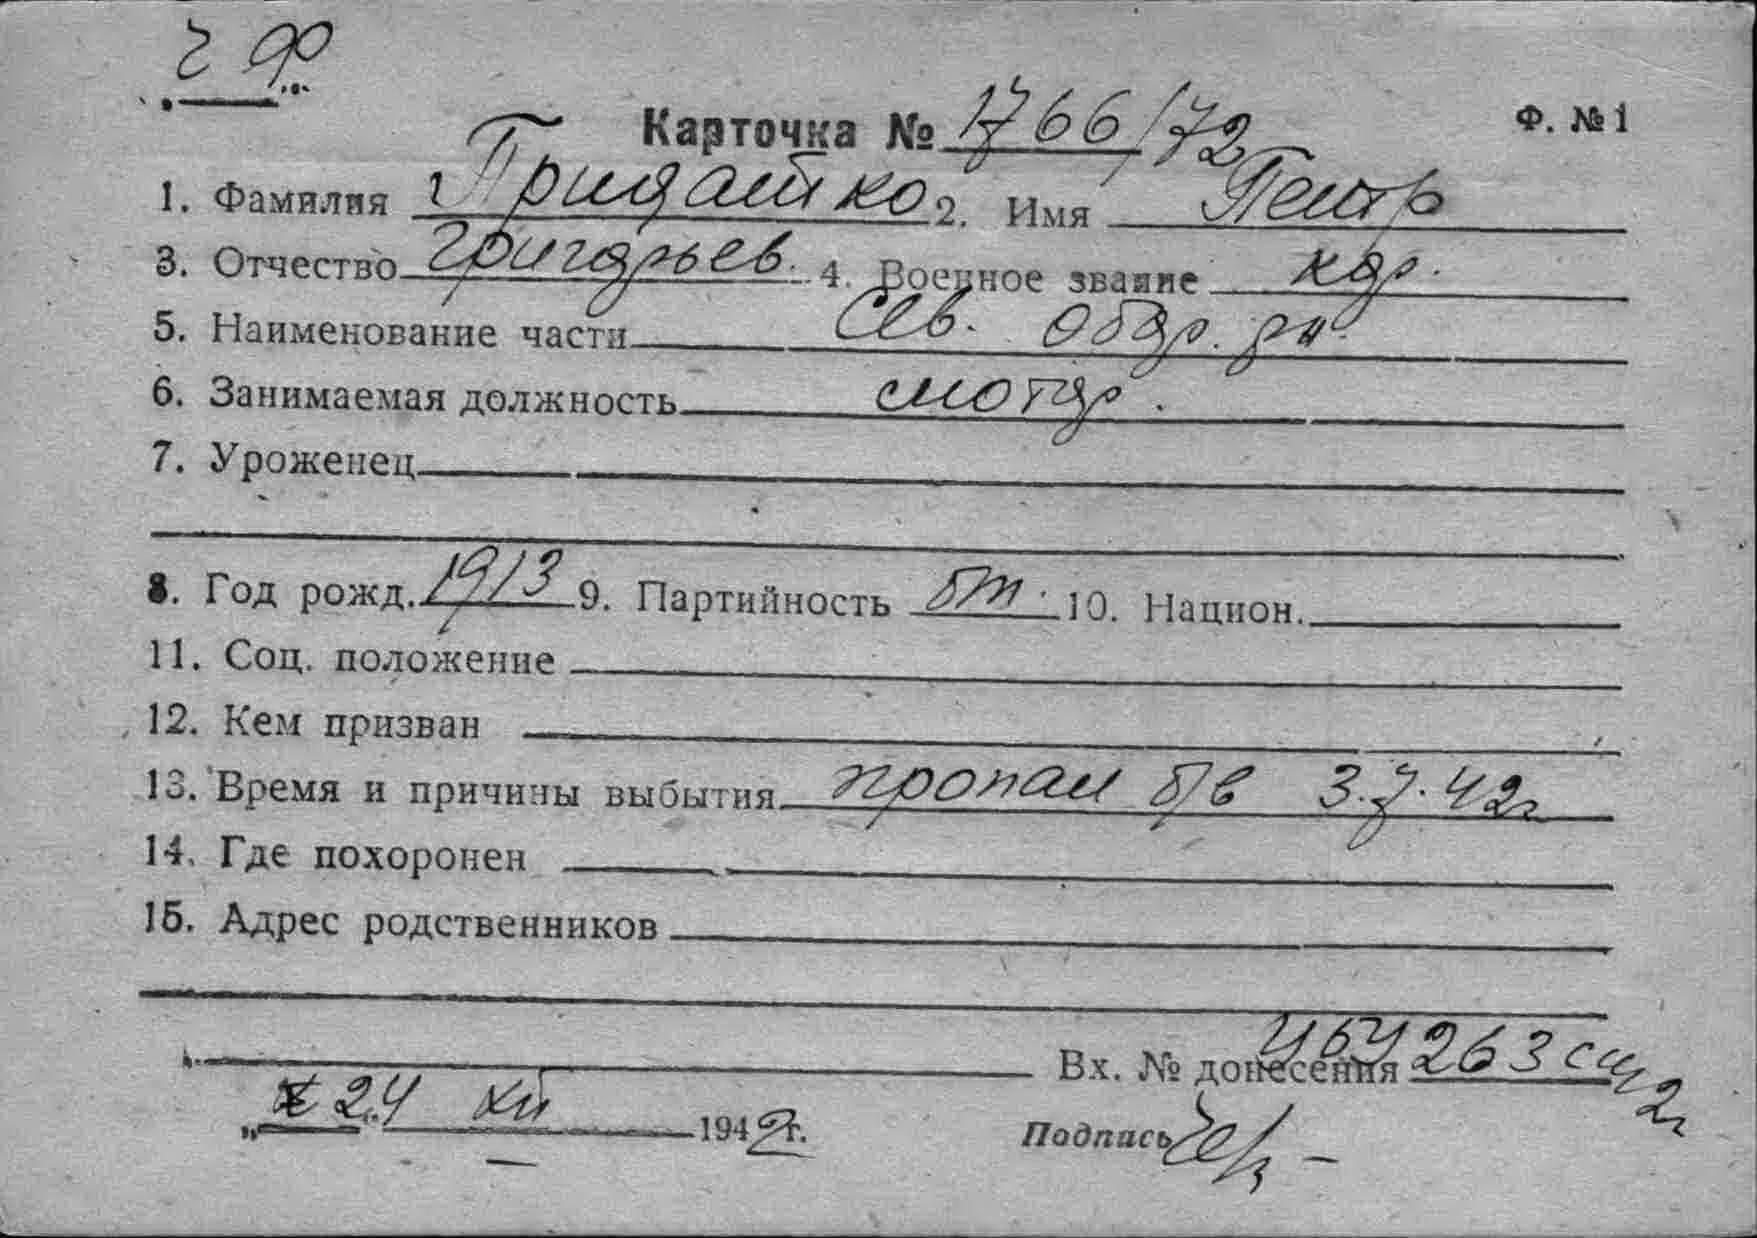 Ч Ф
Карточка № 1766/72 Ф. № 1
1. Фамилия Придатко 2. Имя Петр
3. Отчество Григорьев. 4. Военное звание кдр.
5. Наименование части Сев. Обор. рн.
6. Занимаемая должность
7. Уроженец
8. Год рожд. 1913 9. Партийность б/п. 10. Национ.
11. Соц. положение
12. Кем призван
13. Время и причины выбытия пропал б/в 3.7.42г
14. Где похоронен
15. Адрес родственников
Вх. № донесения 263
"24 XII 1942г.
Подпись